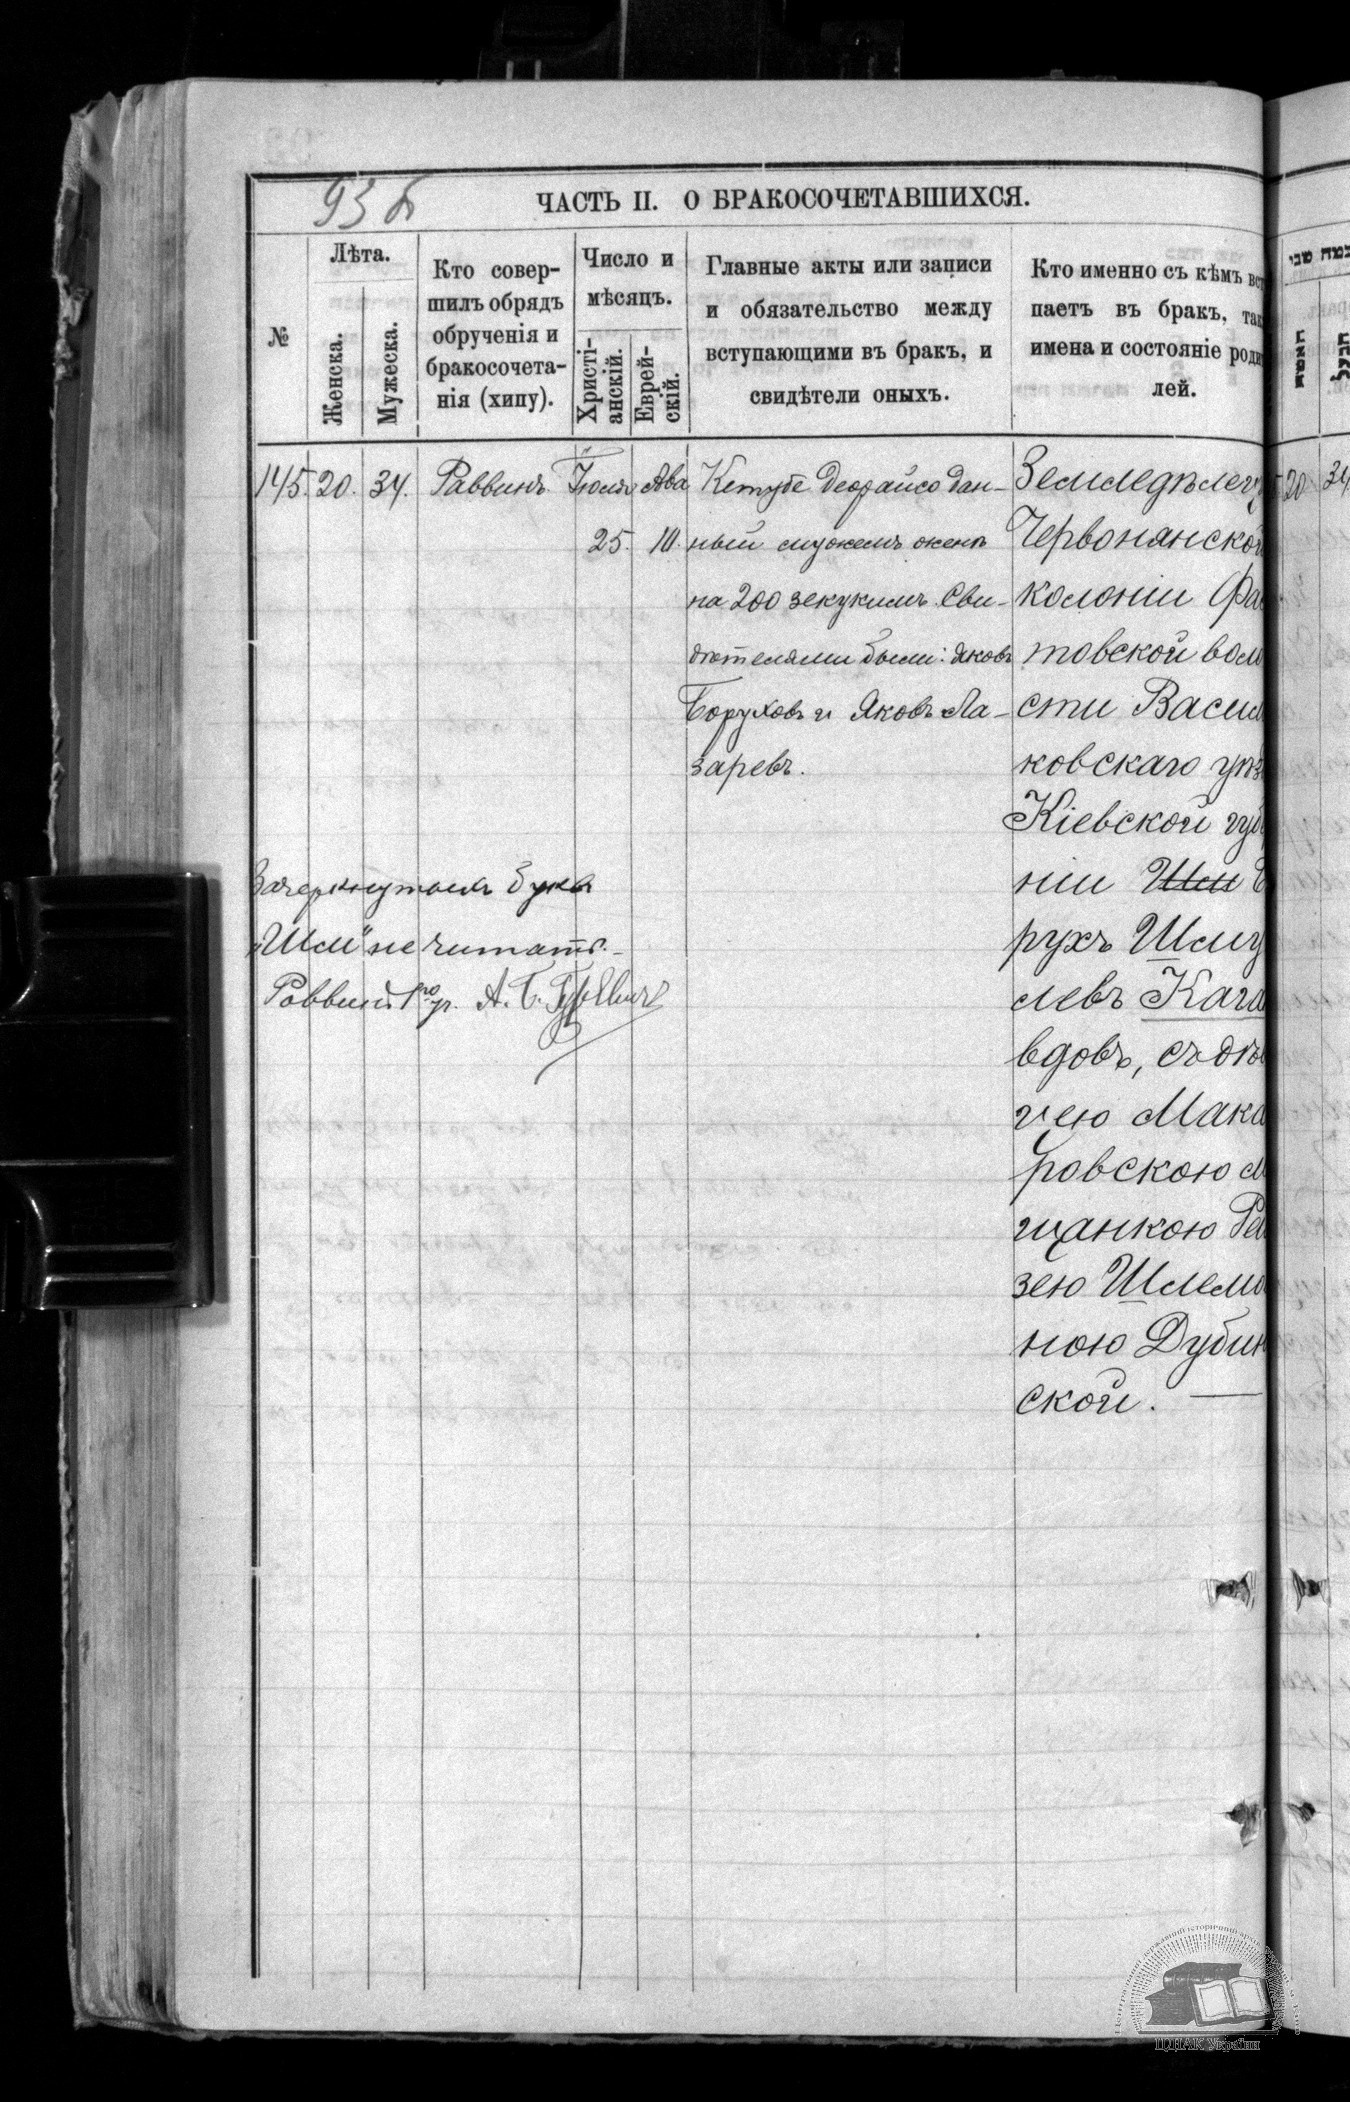 93 б
ЧАСТЬ II. О БРАКОСОЧЕТАВШИХСЯ.
№
Лѣта.
Женска.
Мужеска.
Кто совер-
шилъ обрядъ
обрученія и
бракосочета-
нія (хипу).
Число и
мѣсяцъ.
Христі-
анскій.
Еврей-
скій.
Главные акты или записи
и обязательство между
вступающими въ бракъ, и
свидѣтели оныхъ.
Кто именно съ кѣмъ вст
паетъ въ бракъ, так
имена и состояніе роди
лей.
145. 20. 34. Раввинъ. Іюля Ава
25. 10.
Кетубе Деорайсо дан-
ный мужемъ женѣ
на 200 зекукимъ. Сви-
дѣтелями были: Яковъ
Боруховъ и Яковъ Ла-
заревъ.
Земледѣлецъ
Червонянской
колоніи Фас
товской воло
сти Васил
ковскаго уѣз
Кіевской губ
ніи Шм Б
рухъ Шму
левъ Кага
вдовъ, съ дѣв
чею Мака
ровскою м
щанкою Рей
зею Шлемо
ною Дубин
ской.
Зачеркнутыхъ буквъ
„Шм" не читать.-
Раввинъ А. Б. Гуревичъ
האשה
20 34
ЦДІАК України